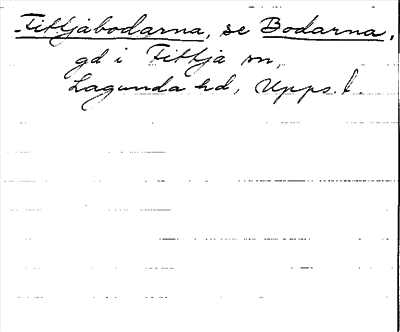 Fittjabodarna, se Bodarna,
gd i Fittja sn,
Lagunda hd, Upps. l.